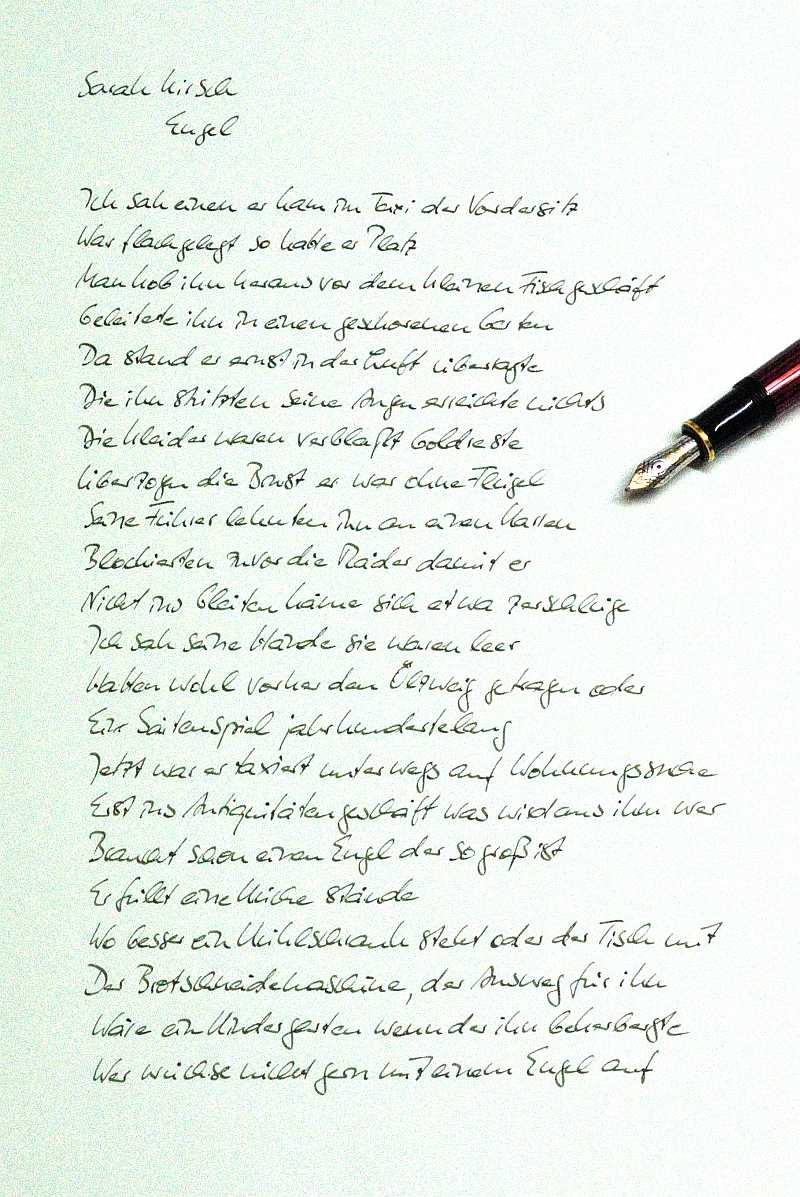 Sarah Kirsch
Engel
Ich sah einen er kam im Taxi der Vordersitz
War flachgelegt so hatte er Platz
Man hob ihn heraus vor dem kleinen Fischgeschäft
Geleitete ihn in einen geschorenen Garten
Da stand er ernst in der Luft überragte
Die ihn stützten seine Augen erreichte nichts
Die Kleider waren verblaßt Goldreste
Überzogen die Brust er war ohne Flügel
Seine Führer lehnten ihn an einen Karren
Blockierten zuvor die Räder damit er
Nicht ins Gleiten käme sich etwa zerschlüge
Ich sah seine Hände sie waren leer
Hatten wohl vorher den Ölzweig getragen oder
Ein Saitenspiel jahrhundertelang
Jetzt war er taxiert unterwegs auf Wohnungssuche
Erst ins Antiquitätengeschäft was wird aus ihm wer
Braucht schon einen Engel der so groß ist
Er füllt eine Küche stände
Wo besser ein Kühlschrank steht oder der Tisch mit
Der Brotschneidemaschine, der Ausweg für ihn
Wäre ein Kindergarten wenn der ihn beherbergte
Wer wüchse nicht gern mit einem Engel auf